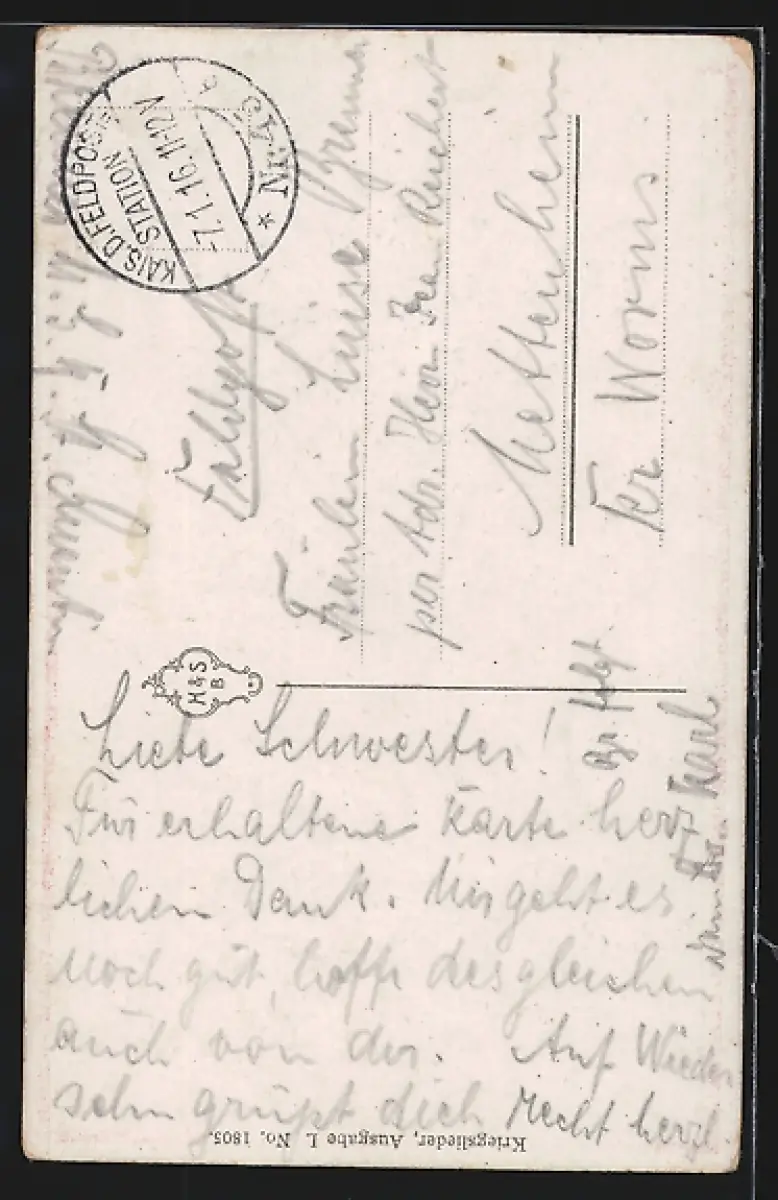 KAIS. D. FELDPOST-
STATION
-7.1.16.11-12V
* Nr. 48 b
Feldpost
Fräulein Luise
per Adr. Herrn Reichert
Mettenheim
Kr Worms
H & S
B
Liebe Schwester!
Für erhaltene Karte herz
lichen Dank. Mir geht es
noch gut, hoffe desgleichen
auch von dir. Auf Wieder
sehn grüßt dich recht herzl.
Karl
Br. folgt
Kriegslieder, Ausgabe I. No. 1805.